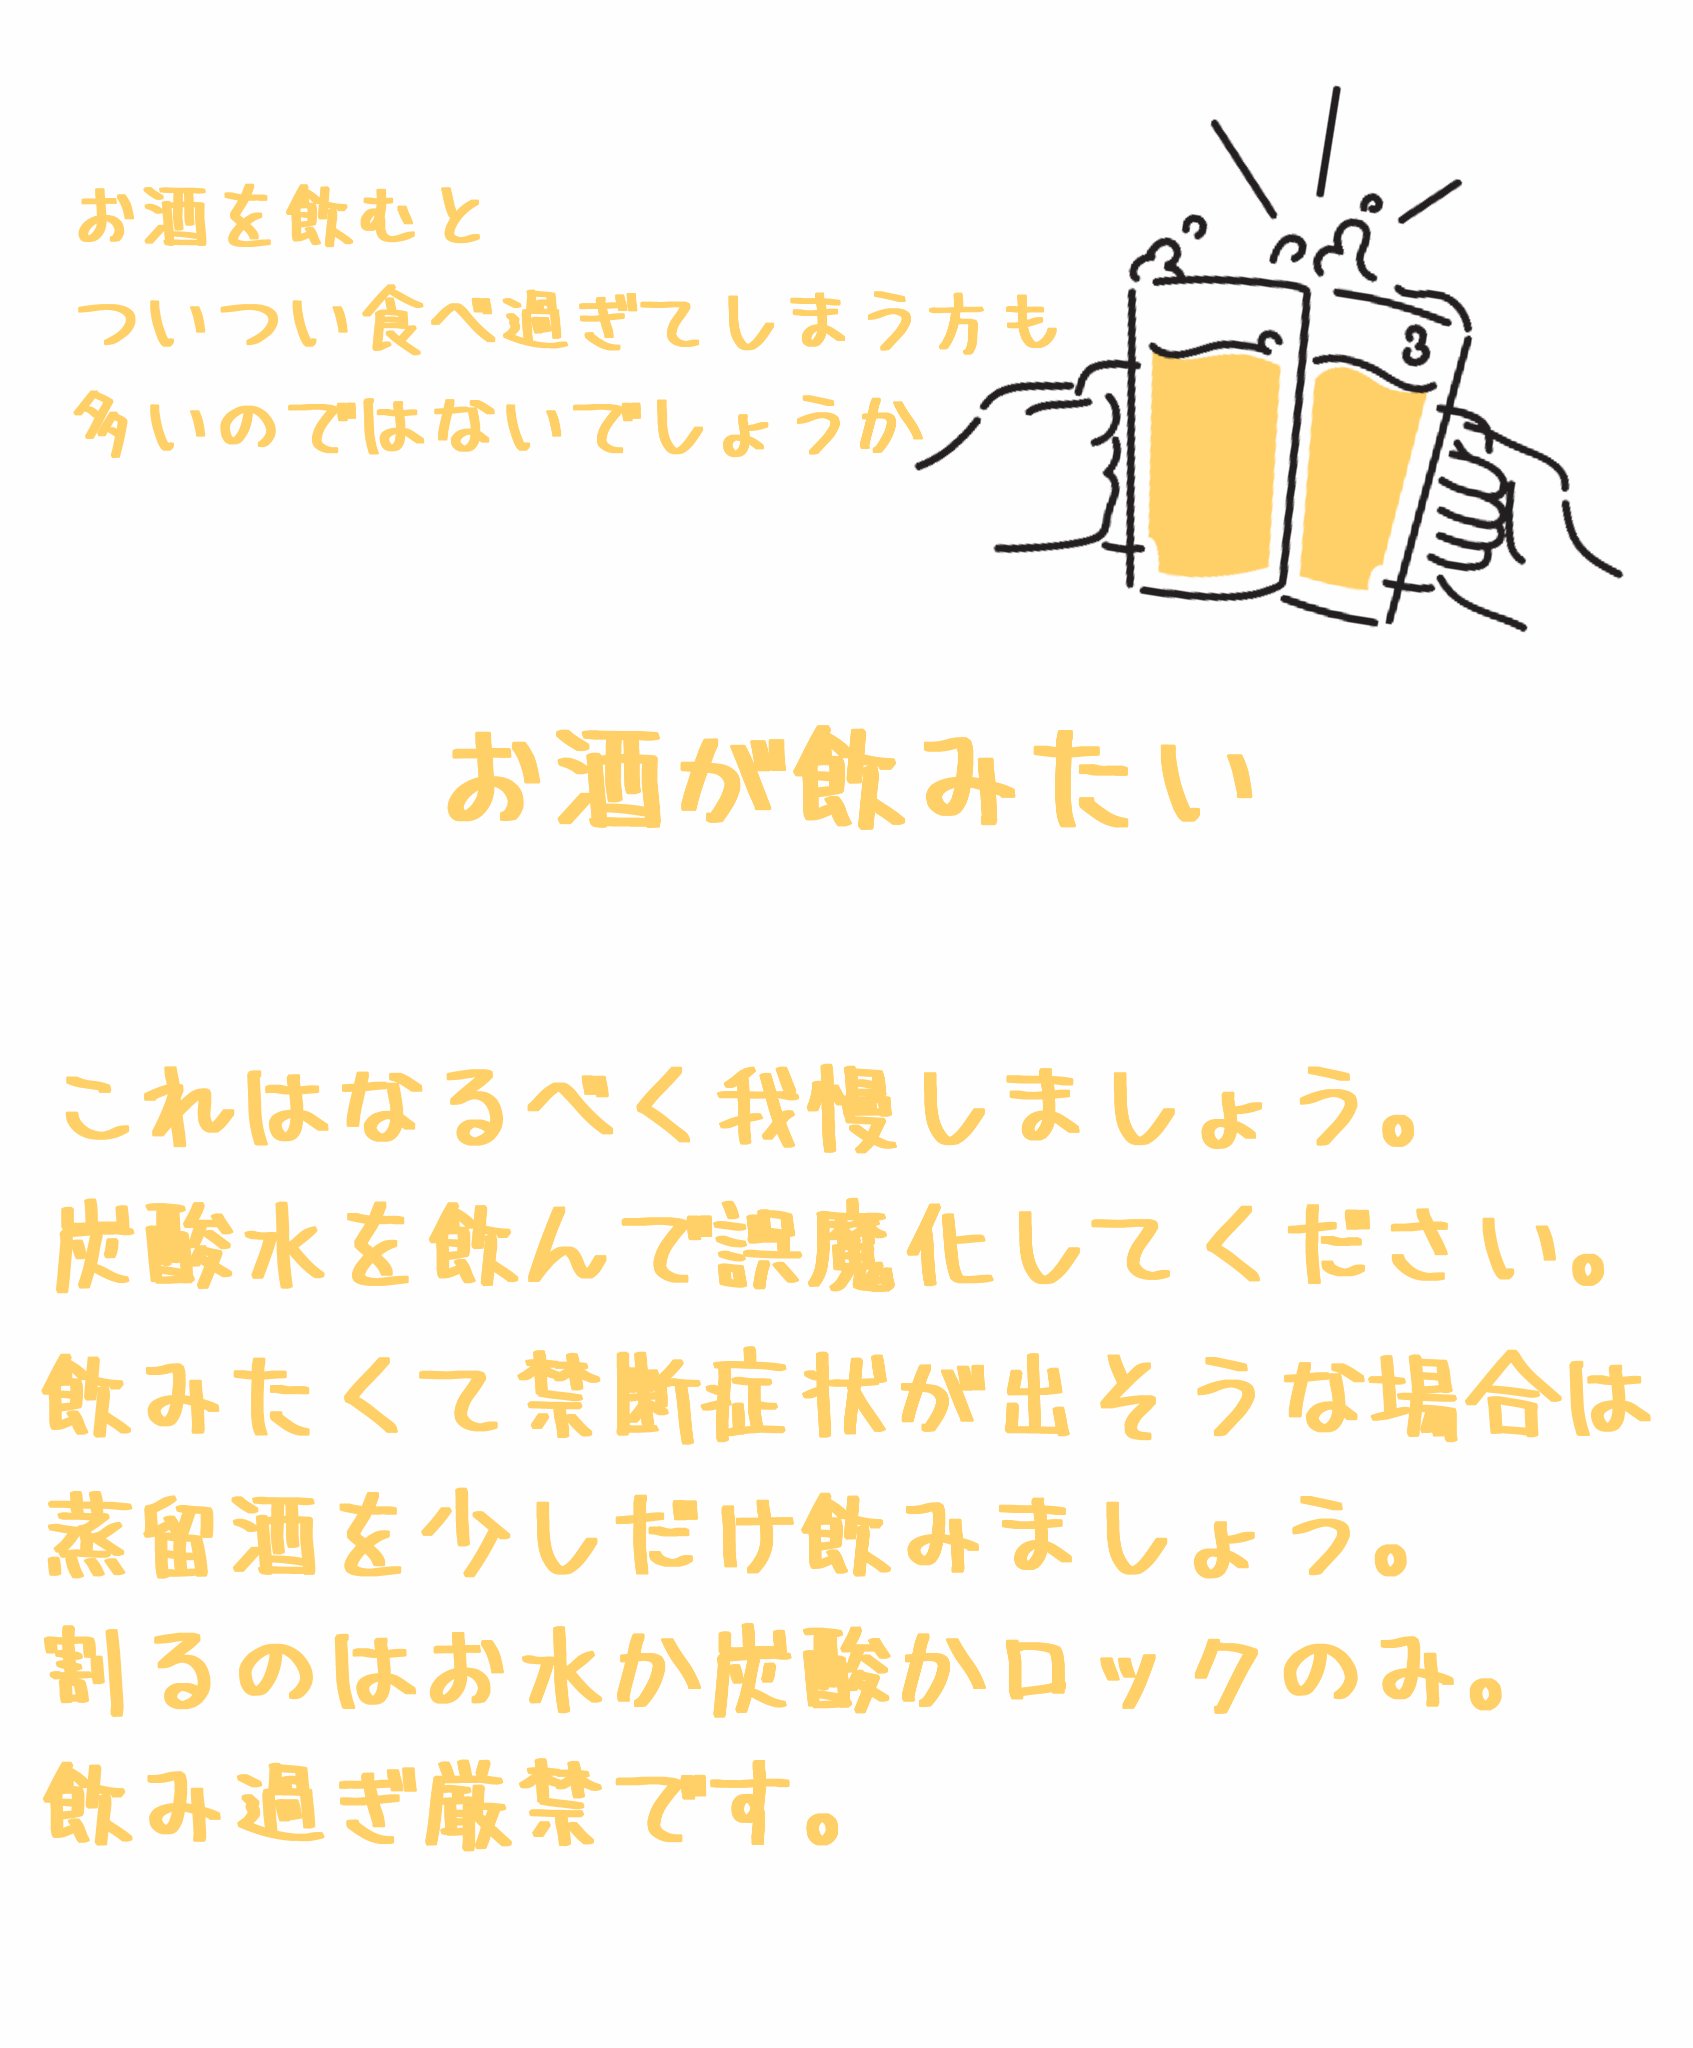 お酒を飲むと
ついつい食べ過ぎてしまう方も
多いのではないでしょうか
お酒が飲みたい
これはなるべく我慢しましょう。
炭酸水を飲んで誤魔化してください。
飲みたくて禁断症状が出そうな場合は
蒸留酒を少しだけ飲みましょう。
割るのはお水か炭酸かロックのみ。
飲み過ぎ厳禁です。